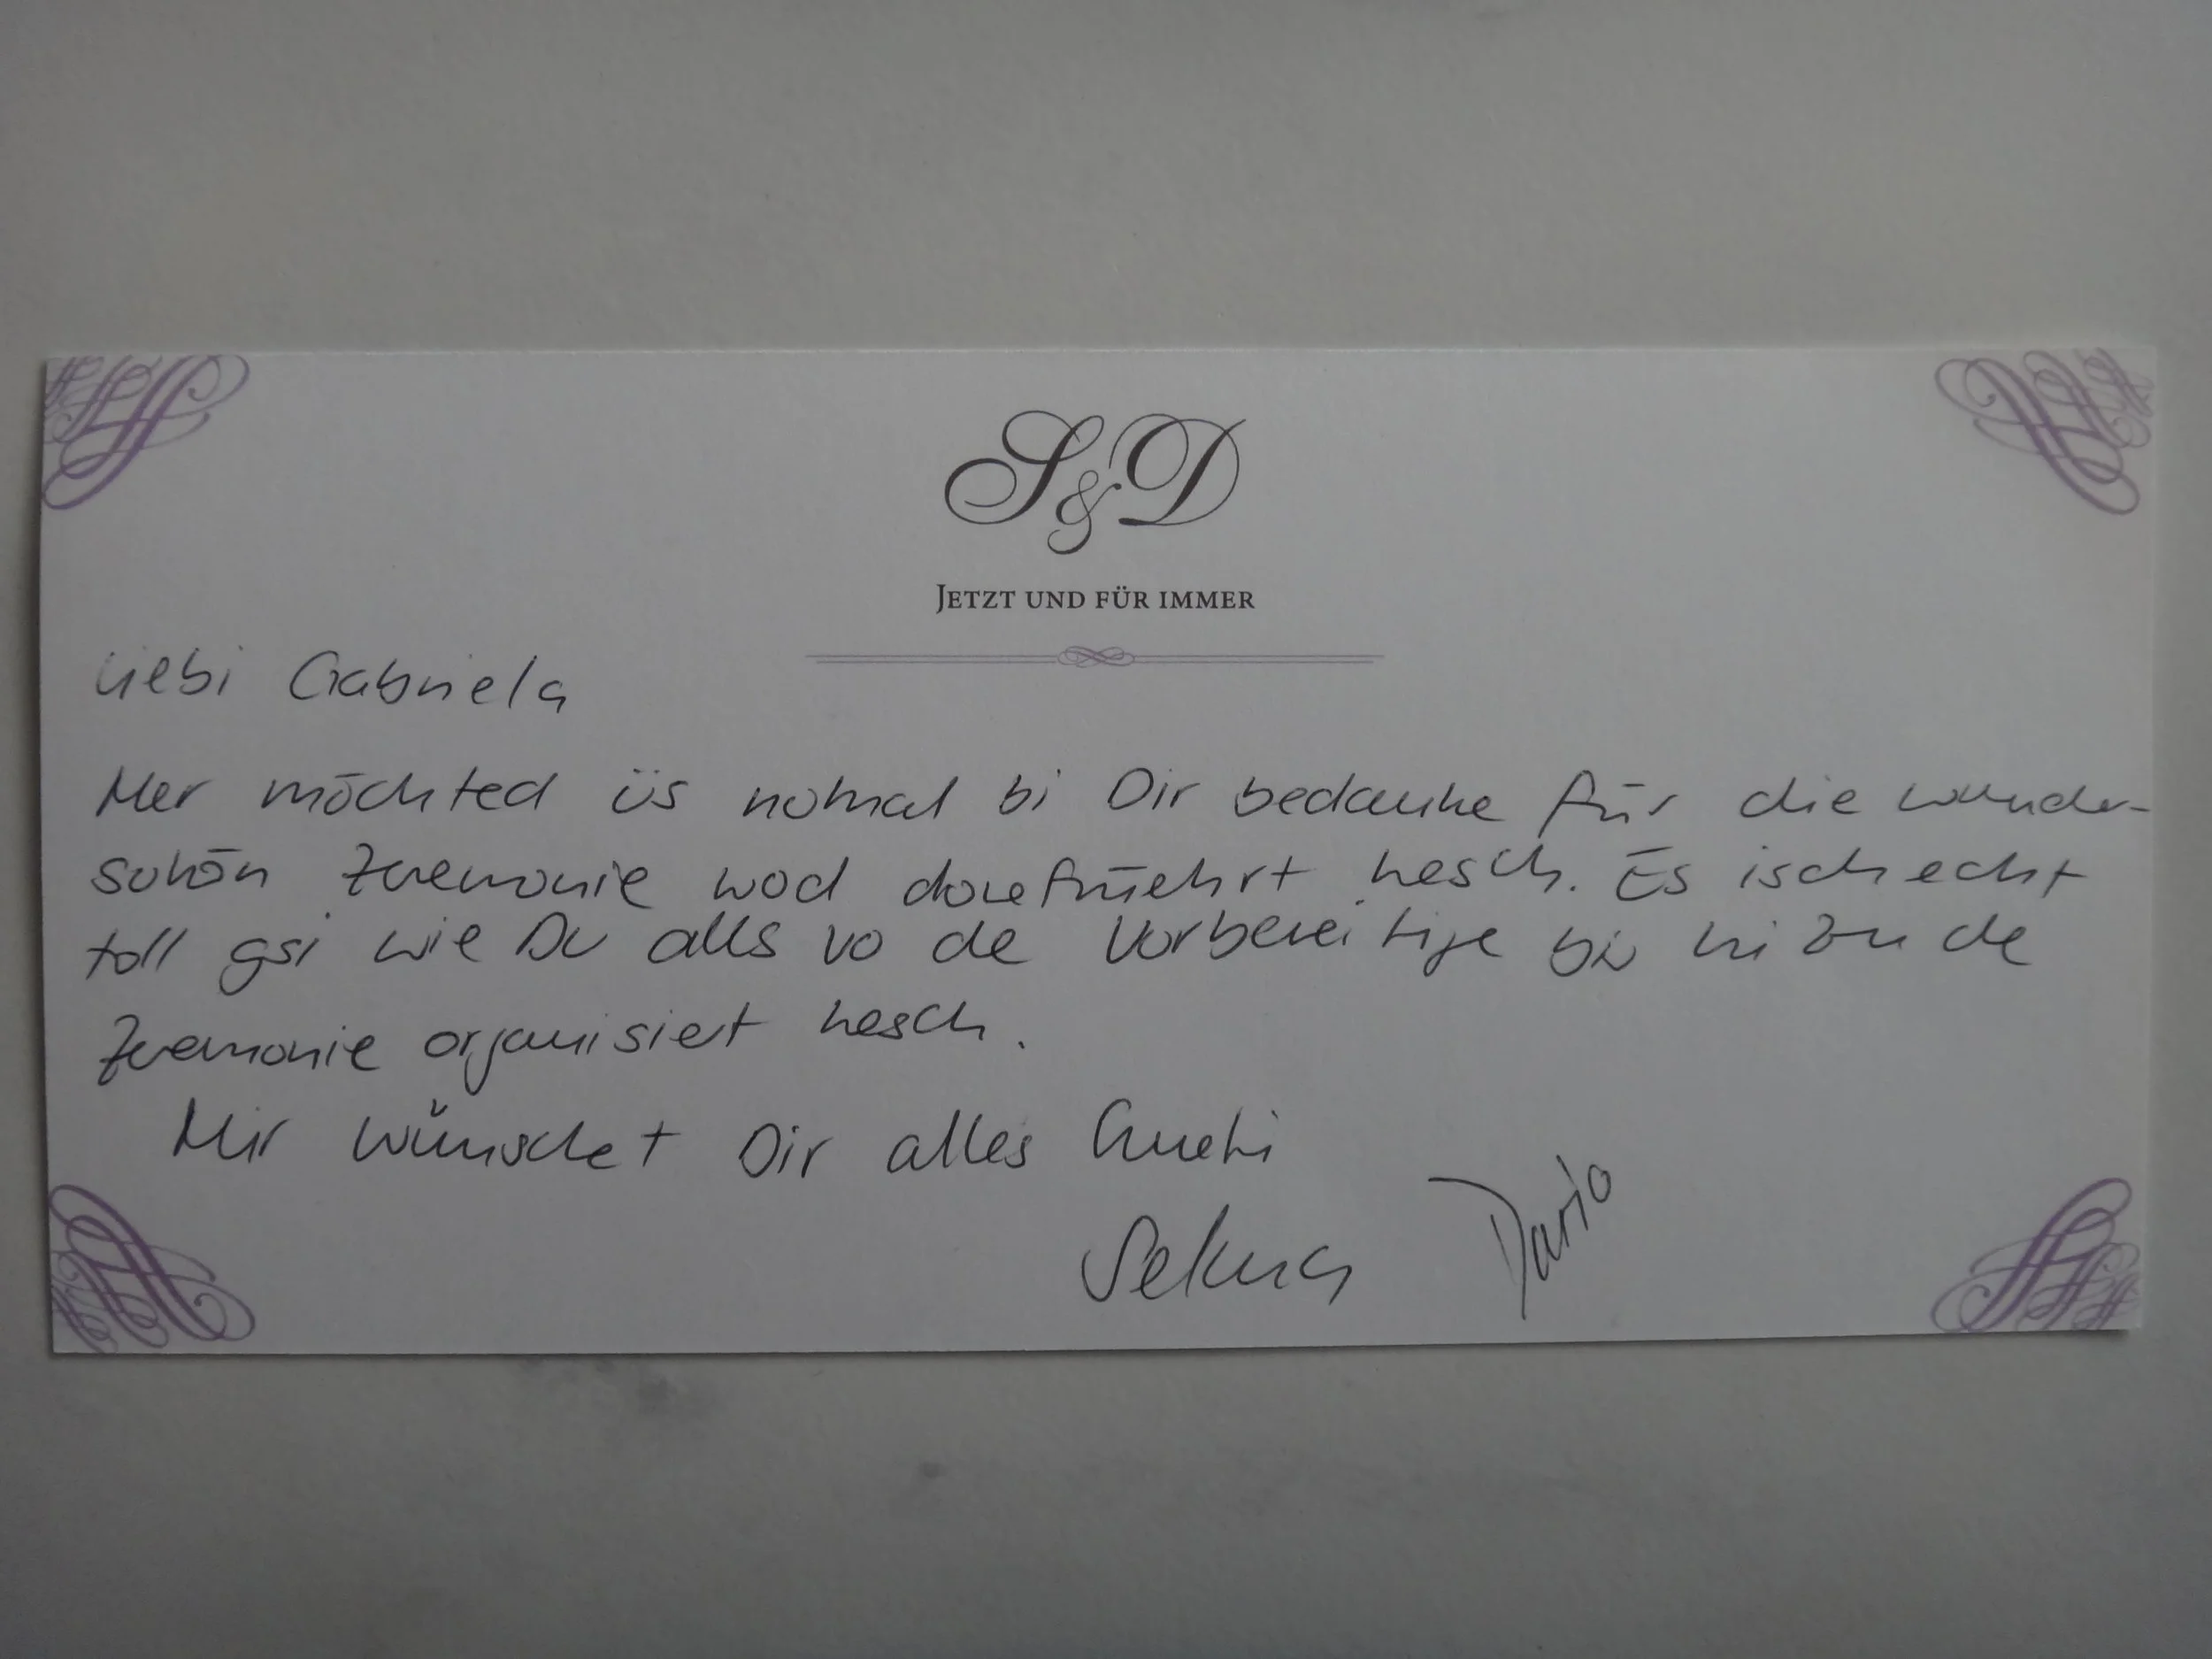 S&D
JETZT UND FÜR IMMER
Liebi Gabriela
Mer möchted üs nomal bi Dir bedanke für die wunder-
schön Zeremonie wod dorefüehrt hesch. Es isch echt
toll gsi wie Du alls vo de Vorbereitige bis hi zu de
Zeremonie organisiert hesch.
Mir wünschet Dir alles Gueti
Selina Dario